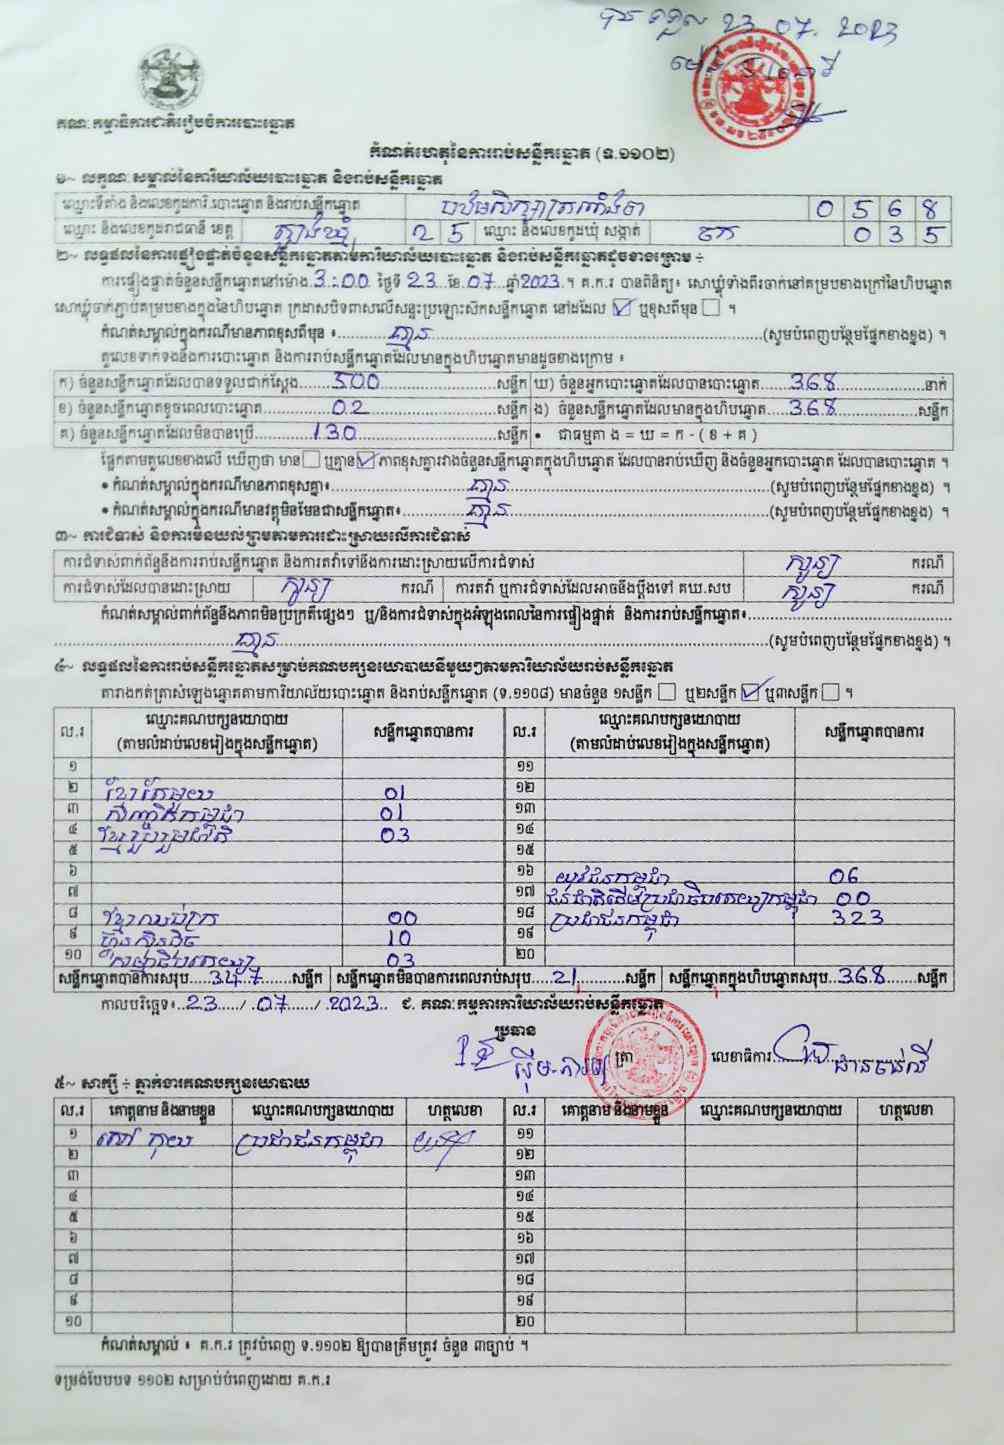 បានទទួល 23.07.2023
គណៈកម្មាធិការជាតិរៀបចំការបោះឆ្នោត
កំណត់ហេតុនៃការរាប់សន្លឹកឆ្នោត (ទ.១១០២)
១~ លក្ខណៈសម្គាល់នៃការិយាល័យបោះឆ្នោត និងរាប់សន្លឹកឆ្នោត
ឈ្មោះទីតាំង និងលេខកូដការិ.បោះឆ្នោត និងរាប់សន្លឹកឆ្នោត 0 5 6 8
ឈ្មោះ និងលេខកូដរាជធានី ខេត្ត ត្បូងឃ្មុំ 2 5 ឈ្មោះ និងលេខកូដឃុំ សង្កាត់ ចក 0 3 5
២~ លទ្ធផលនៃការផ្ទៀងផ្ទាត់ចំនួនសន្លឹកឆ្នោតតាមការិយាល័យបោះឆ្នោត និងរាប់សន្លឹកឆ្នោតដូចខាងក្រោម ÷
ការផ្ទៀងផ្ទាត់ចំនួនសន្លឹកឆ្នោតនៅម៉ោង 3:00 ថ្ងៃទី 23 ខែ 07 ឆ្នាំ 2023 ។ គ.ក.រ បានពិនិត្យ៖ សោឃ្មុំទាំងពីរចាក់នៅគម្របខាងក្រៅនៃហិបឆ្នោត
សោឃ្មុំចាក់ភ្ជាប់គម្របខាងក្នុងនៃហិបឆ្នោត ក្រដាសបិទពាសលើសន្ទះប្រឡោះស៊កសន្លឹកឆ្នោត នៅដដែល ☑ ឬខុសពីមុន ☐ ។
កំណត់សម្គាល់ក្នុងករណីមានភាពខុសពីមុន ៖ គ្មាន (សូមបំពេញបន្ថែមផ្នែកខាងខ្នង) ។
តួលេខទាក់ទងនឹងការបោះឆ្នោត និងការរាប់សន្លឹកឆ្នោតដែលមានក្នុងហិបឆ្នោតមានដូចខាងក្រោម ៖
ក) ចំនួនសន្លឹកឆ្នោតដែលបានទទួលជាក់ស្តែង 500 សន្លឹក ឃ) ចំនួនអ្នកបោះឆ្នោតដែលបានបោះឆ្នោត 368 នាក់
ខ) ចំនួនសន្លឹកឆ្នោតខូចពេលបោះឆ្នោត 02 សន្លឹក ង) ចំនួនសន្លឹកឆ្នោតដែលមានក្នុងហិបឆ្នោត 368 សន្លឹក
គ) ចំនួនសន្លឹកឆ្នោតដែលមិនបានប្រើ 130 សន្លឹក • ជាធម្មតា ង = ឃ = ក - ( ខ + គ )
ផ្អែកតាមតួលេខខាងលើ ឃើញថា មាន ☐ ឬគ្មាន ☑ ភាពខុសគ្នារវាងចំនួនសន្លឹកឆ្នោតក្នុងហិបឆ្នោត ដែលបានរាប់ឃើញ និងចំនួនអ្នកបោះឆ្នោត ដែលបានបោះឆ្នោត ។
• កំណត់សម្គាល់ក្នុងករណីមានភាពខុសគ្នា៖ គ្មាន (សូមបំពេញបន្ថែមផ្នែកខាងខ្នង) ។
• កំណត់សម្គាល់ក្នុងករណីមានវត្ថុមិនមែនជាសន្លឹកឆ្នោត៖ គ្មាន (សូមបំពេញបន្ថែមផ្នែកខាងខ្នង) ។
៣~ ការជំទាស់ និងការមិនយល់ព្រមតាមការដោះស្រាយលើការជំទាស់
ការជំទាស់ពាក់ព័ន្ធនឹងការរាប់សន្លឹកឆ្នោត និងការតវ៉ាទៅនឹងការដោះស្រាយលើការជំទាស់ សូន្យ ករណី
ការជំទាស់ដែលបានដោះស្រាយ សូន្យ ករណី ការតវ៉ា ឬការជំទាស់ដែលអាចនឹងប្តឹងទៅ គឃ.សប សូន្យ ករណី
កំណត់សម្គាល់ពាក់ព័ន្ធនឹងភាពមិនប្រក្រតីផ្សេងៗ ឬ/និងការជំទាស់ក្នុងអំឡុងពេលនៃការផ្ទៀងផ្ទាត់ និងការរាប់សន្លឹកឆ្នោត៖
គ្មាន (សូមបំពេញបន្ថែមផ្នែកខាងខ្នង) ។
៤~ លទ្ធផលនៃការរាប់សន្លឹកឆ្នោតសម្រាប់គណបក្សនយោបាយនីមួយៗតាមការិយាល័យរាប់សន្លឹកឆ្នោត
តារាងកត់ត្រាសំឡេងឆ្នោតតាមការិយាល័យបោះឆ្នោត និងរាប់សន្លឹកឆ្នោត (ទ.១១០៨) មានចំនួន ១សន្លឹក ☐ ឬ២សន្លឹក ☑ ឬ៣សន្លឹក ☐ ។
ល.រ ឈ្មោះគណបក្សនយោបាយ (តាមលំដាប់លេខរៀងក្នុងសន្លឹកឆ្នោត) សន្លឹកឆ្នោតបានការ ល.រ ឈ្មោះគណបក្សនយោបាយ (តាមលំដាប់លេខរៀងក្នុងសន្លឹកឆ្នោត) សន្លឹកឆ្នោតបានការ
១ ១១
២ ខ្មែរតែមួយ 01 ១២
៣ សញ្ជាតិកម្ពុជា 01 ១៣
៤ ខ្មែររួបរួមជាតិ 03 ១៤
៥ ១៥
៦ ១៦ យុវជនកម្ពុជា 06
៧ ១៧ ជនជាតិដើមប្រជាធិបតេយ្យកម្ពុជា 00
៨ ខ្មែរឈប់ក្រ 00 ១៨ ប្រជាជនកម្ពុជា 323
៩ ហ្វ៊ុនស៊ិនប៉ិច 10 ១៩
១០ 03 ២០
សន្លឹកឆ្នោតបានការសរុប 347 សន្លឹក សន្លឹកឆ្នោតមិនបានការពេលរាប់សរុប 21 សន្លឹក សន្លឹកឆ្នោតក្នុងហិបឆ្នោតសរុប 368 សន្លឹក
កាលបរិច្ឆេទ៖ 23 / 07 / 2023 ជ. គណៈកម្មការការិយាល័យរាប់សន្លឹកឆ្នោត
ប្រធាន
ត្រា លេខាធិការ
៥~ សាក្សី ÷ ភ្នាក់ងារគណបក្សនយោបាយ
ល.រ គោត្តនាម និងនាមខ្លួន ឈ្មោះគណបក្សនយោបាយ ហត្ថលេខា ល.រ គោត្តនាម និងនាមខ្លួន ឈ្មោះគណបក្សនយោបាយ ហត្ថលេខា
១ ប្រជាជនកម្ពុជា ១១
២ ១២
៣ ១៣
៤ ១៤
៥ ១៥
៦ ១៦
៧ ១៧
៨ ១៨
៩ ១៩
១០ ២០
កំណត់សម្គាល់ ៖ គ.ក.រ ត្រូវបំពេញ ទ.១១០២ ឱ្យបានត្រឹមត្រូវ ចំនួន ៣ច្បាប់ ។
ទម្រង់បែបបទ ១១០២ សម្រាប់បំពេញដោយ គ.ក.រ